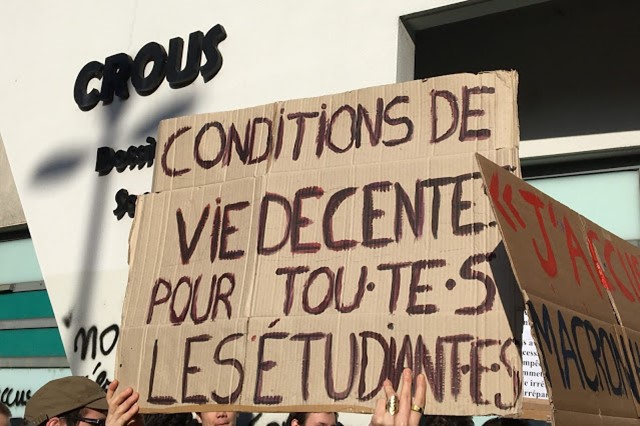 CROUS
CONDITIONS DE
VIE DECENTE
POUR TOU·TE·S
LES ÉTUDIANT·E·S
« J'ACCUS
MACRON
no